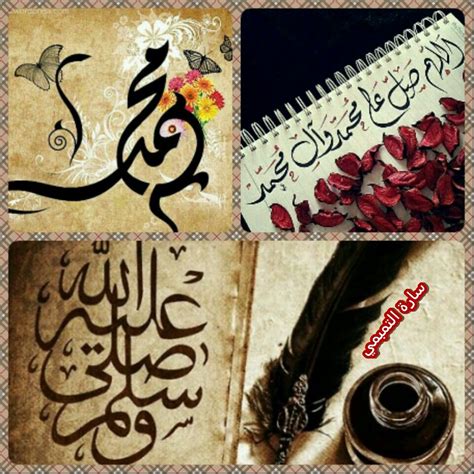 محمد
اللهم صل على محمد وآل محمد
صلى الله عليه وسلم
سارة التميمي